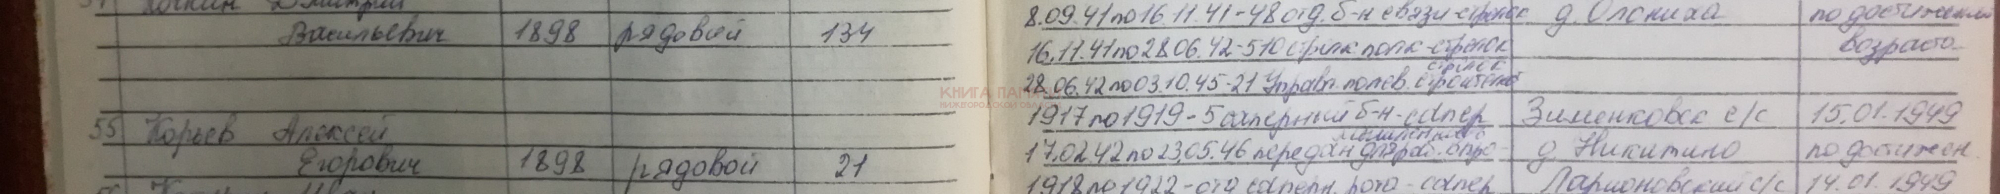 Дмитрий
8.09.41 по 16.11.41-48 отд. б-н связи-стрелок д. Олониха по достижении
Васильевич 1898 рядовой 134
16.11.41 по 28.06.42-510 стрелк полк-стрелок возраста
стрелок
28.06.42 по 03.10.45-21 Управл. полев.
КНИГА ПАМЯТИ
НИЖЕГОРОДСКОЙ ОБЛАСТИ
1917 по 1919-5 саперный б-н-сапер Зименковск с/с 15.01.1949
55 Корьев Алексей
17.02.42 по 23.05.46 передан д. Никитино по достижен.
Егорович 1898 рядовой 21
1918 по 1922-отд саперн. рота-сапер Ларионовский с/с 14.01.1949